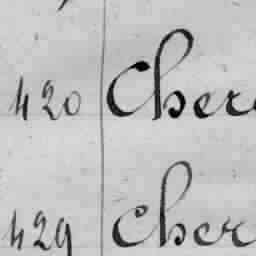 420 Cher
429 Cher